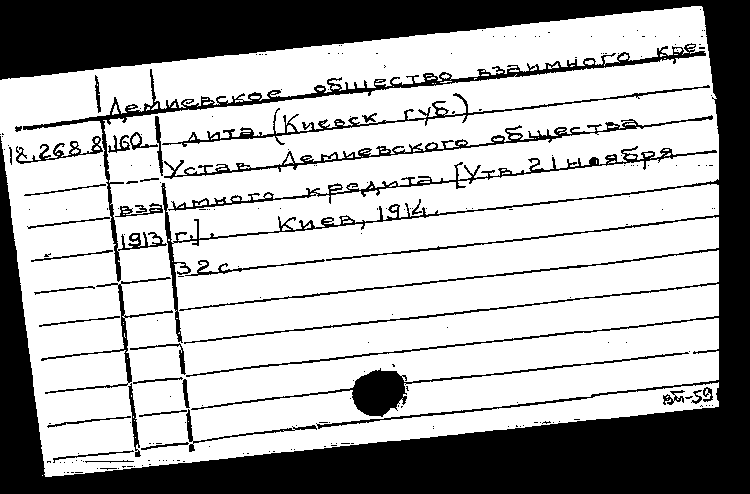 Демиевское общество взаимного кре-
18.268.8.160. дита. (Киевск. губ.).
Устав Демиевского общества
взаимного кредита. [Утв. 21 ноября
1913 г.]. Киев, 1914.
32 с.
вй-59